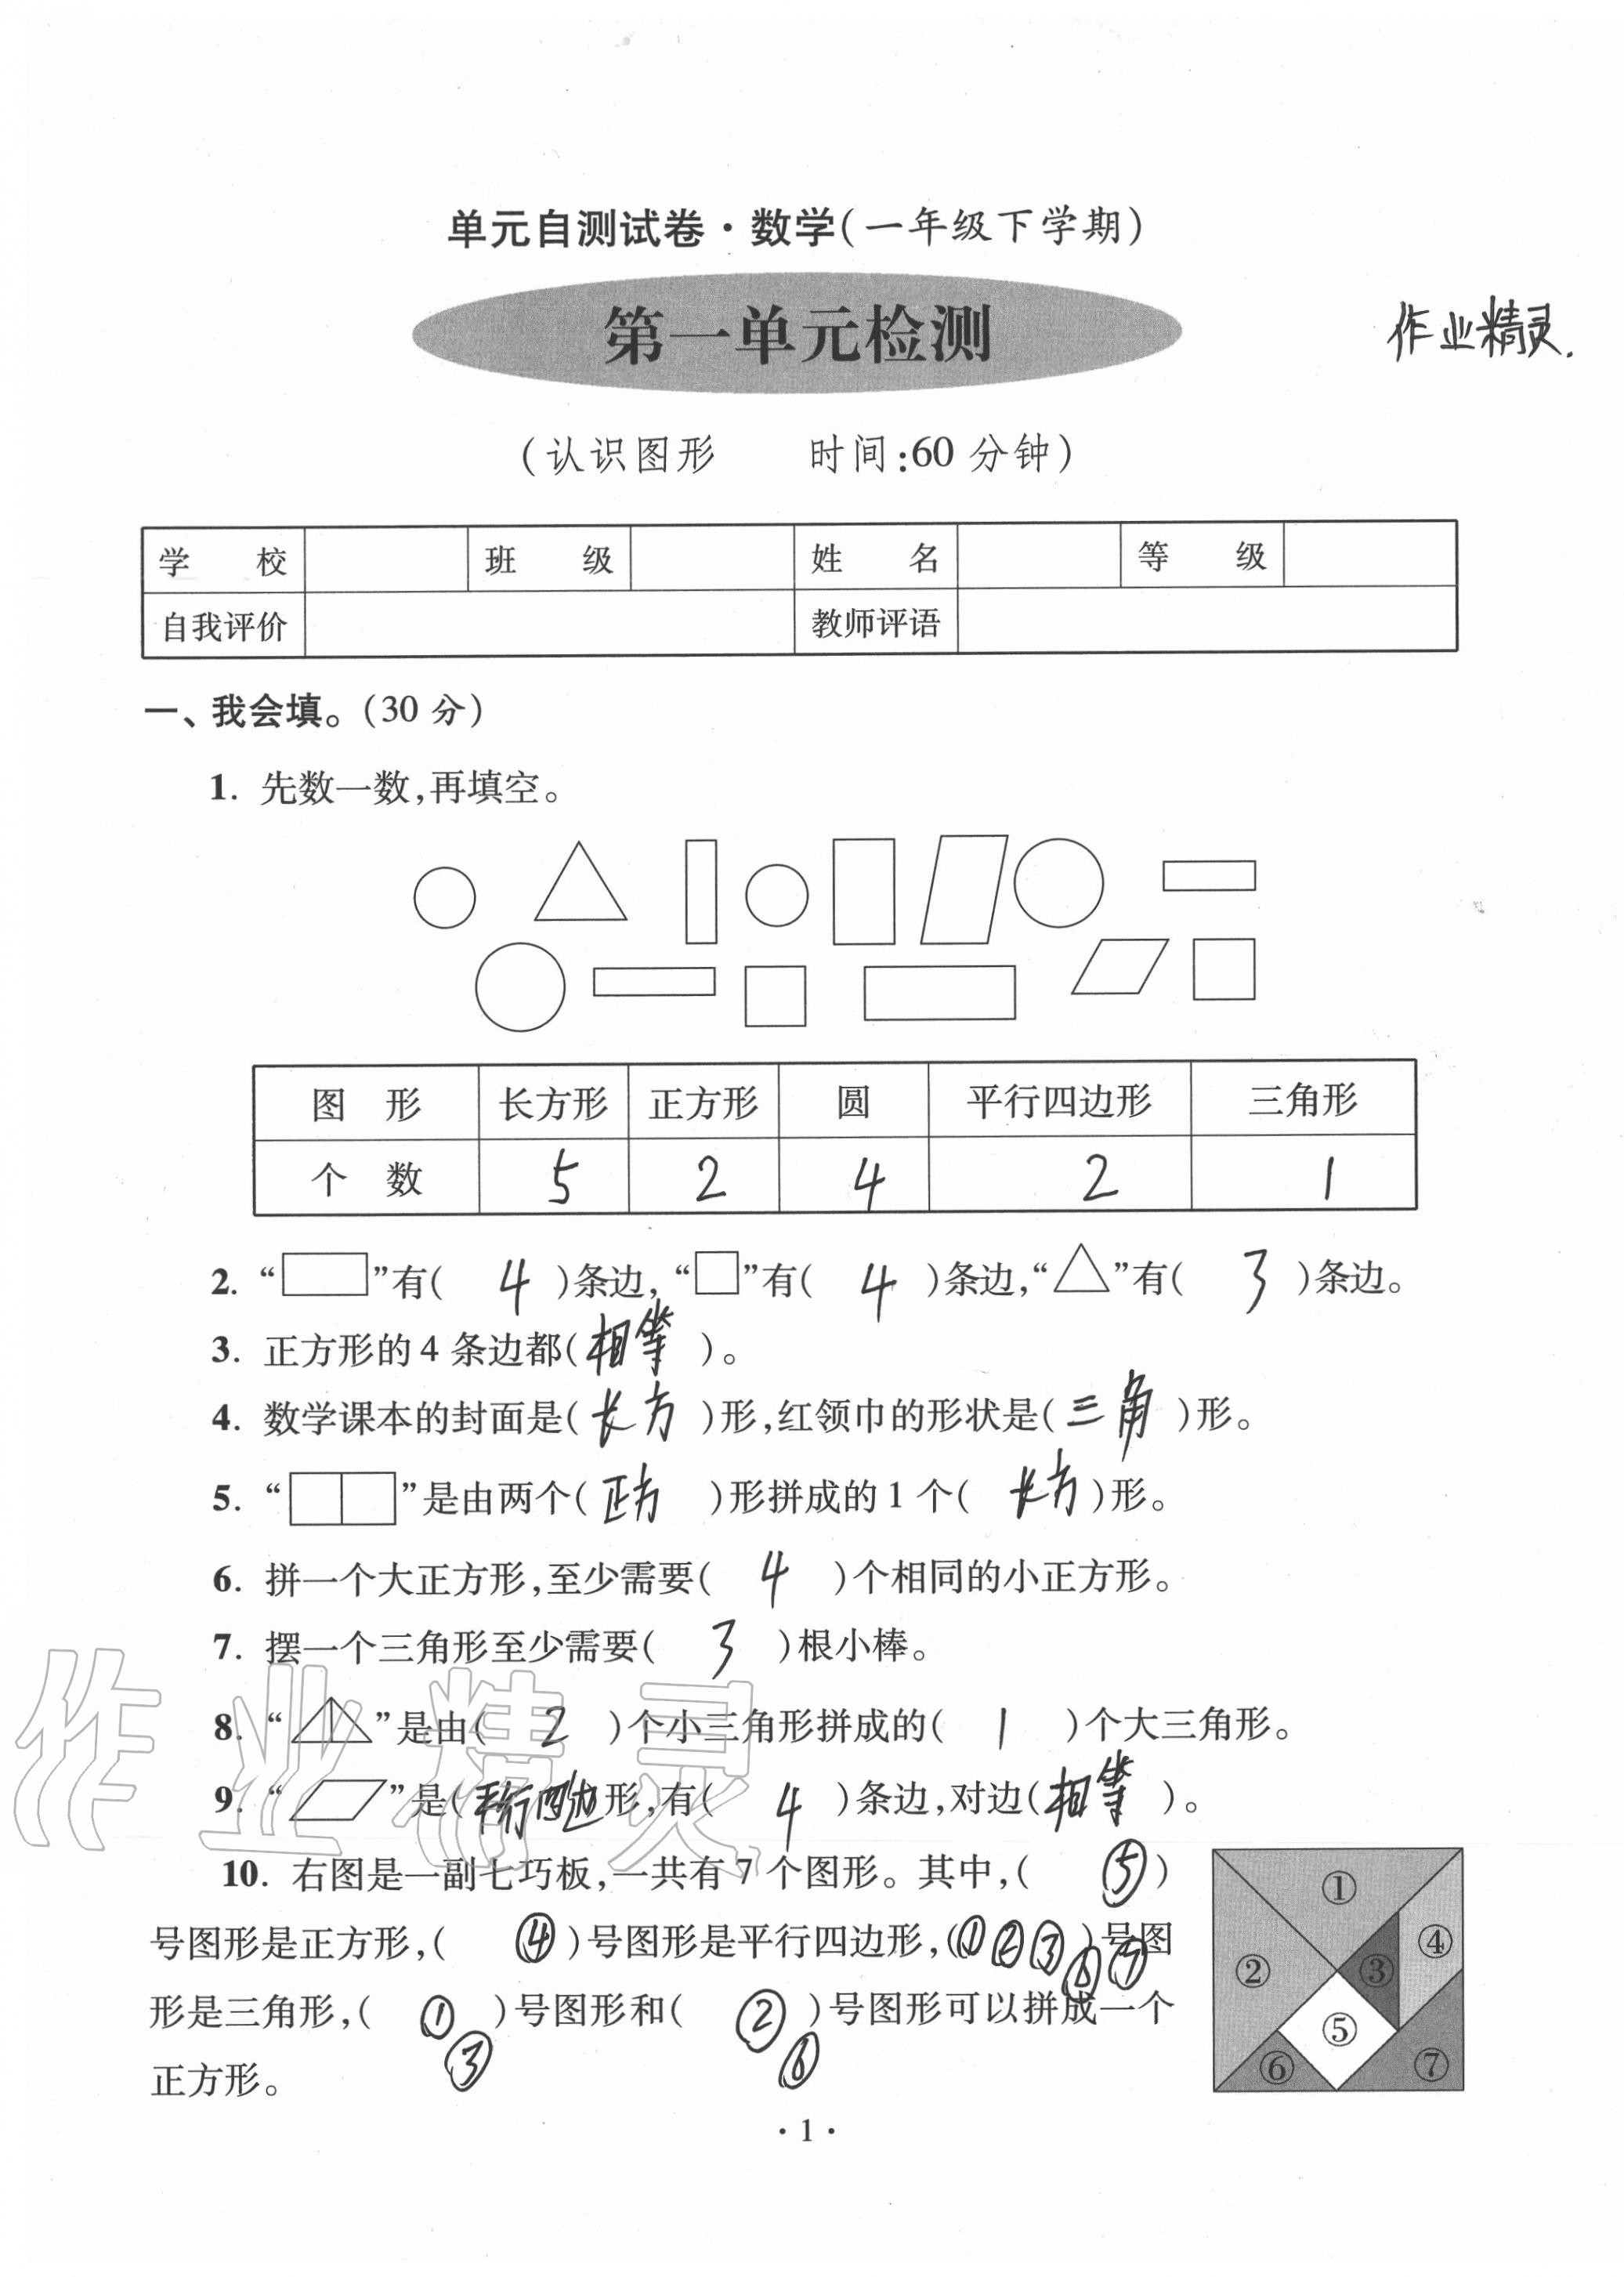 单元自测试卷·数学(一年级下学期)
第一单元检测
作业精灵.
(认识图形 时间:60 分钟)
学 校 班 级 姓 名 等 级
自我评价 教师评语
一、我会填。(30 分)
1. 先数一数,再填空。
图 形 长方形 正方形 圆 平行四边形 三角形
个 数 5 2 4 2 1
2. “”有( 4 )条边,“”有( 4 )条边,“”有( 3 )条边。
3. 正方形的 4 条边都(相等)。
4. 数学课本的封面是(长方)形,红领巾的形状是(三角)形。
5. “”是由两个(正方)形拼成的 1 个(长方)形。
6. 拼一个大正方形,至少需要( 4 )个相同的小正方形。
7. 摆一个三角形至少需要( 3 )根小棒。
8. “”是由( 2 )个小三角形拼成的( 1 )个大三角形。
9. “”是(平行四边形,有( 4 )条边,对边(相等)。
10. 右图是一副七巧板,一共有 7 个图形。其中,( ⑤ )
号图形是正方形,( ④ )号图形是平行四边形,(①②③⑥⑦)号图
形是三角形,( ① )号图形和( ② )号图形可以拼成一个
③ ⑥
正方形。
① ② ③ ④ ⑤ ⑥ ⑦
·1·
作业精灵